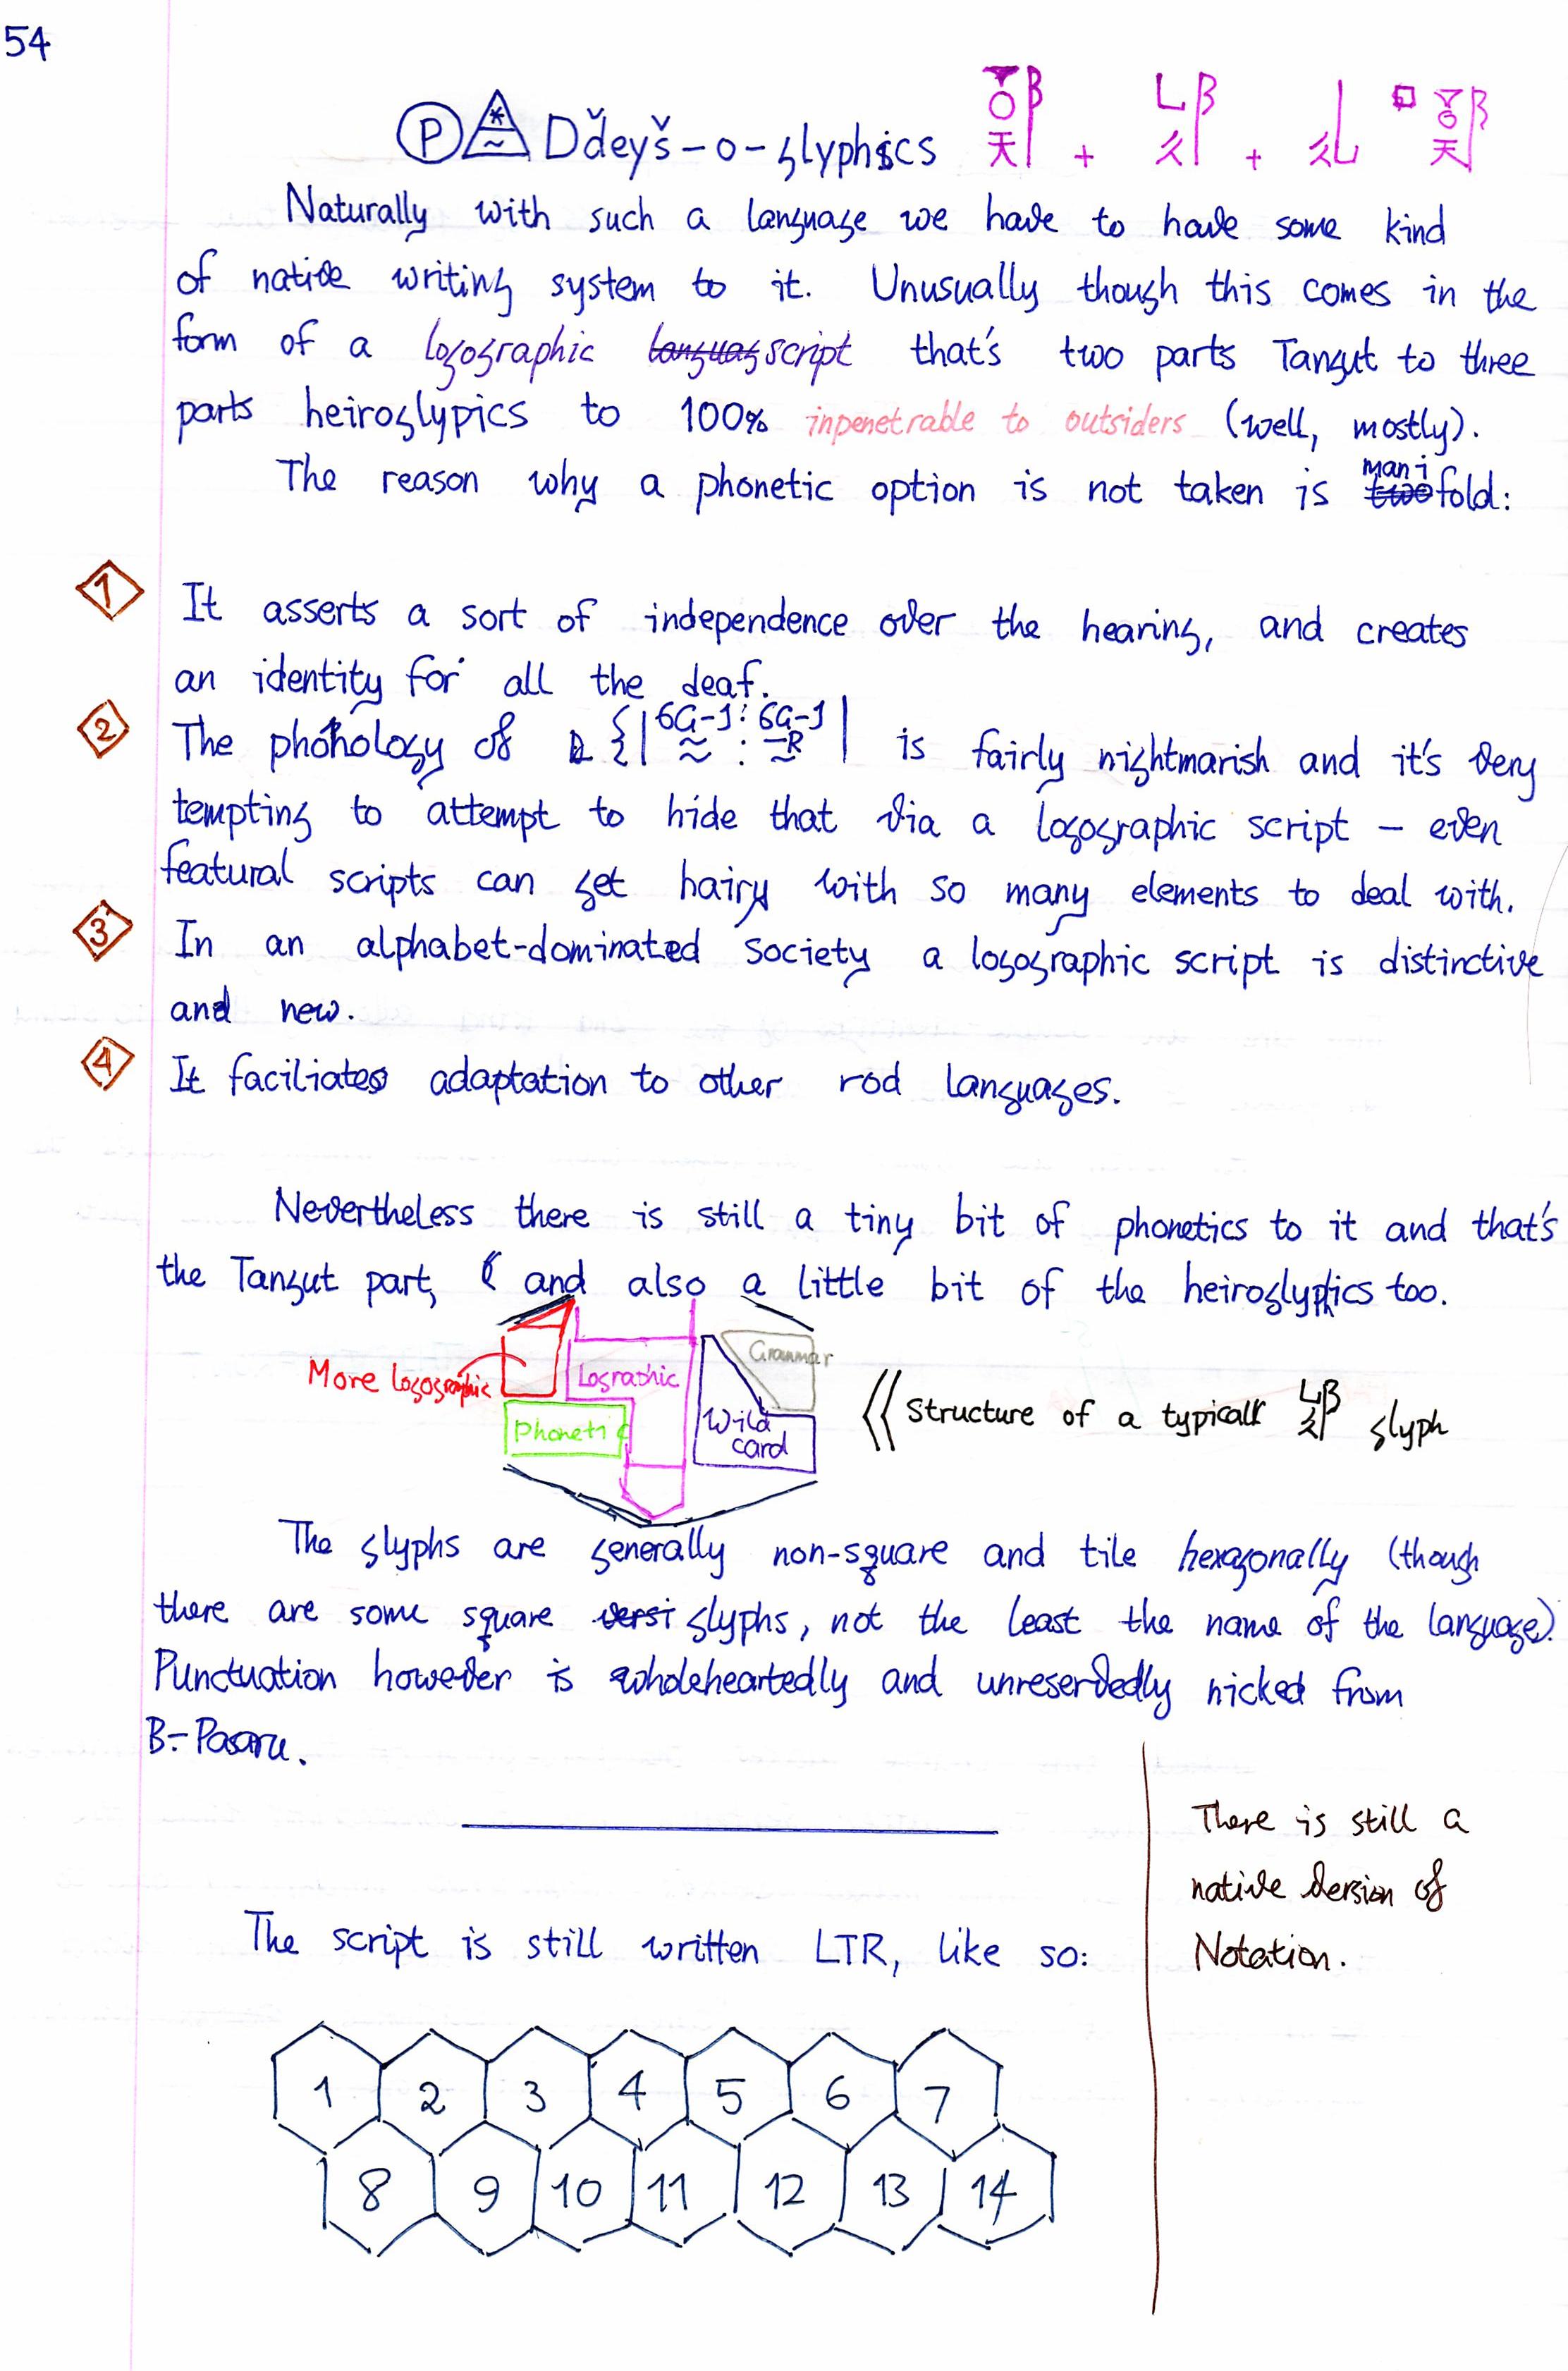 54
Ⓟ Dďeyš-o-glyphics + +
Naturally with such a language we have to have some kind
of native writing system to it. Unusually though this comes in the
form of a logographic languag script that's two parts Tangut to three
parts heiroglypics to 100% inpenetrable to outsiders (well, mostly).
The reason why a phonetic option is not taken is two manifold:
1 It asserts a sort of independence over the hearing, and creates
an identity for all the deaf.
2 The phonology of {| 6G-J : 6G-J | is fairly nightmarish and it's very
tempting to attempt to hide that via a logographic script – even
featural scripts can get hairy with so many elements to deal with.
3 In an alphabet-dominated society a logographic script is distinctive
and new.
4 It faciliates adaptation to other rod languages.
Nevertheless there is still a tiny bit of phonetics to it and that's
the Tangut part, ( and also a little bit of the heiroglyphics too.
More logographic
Lograthic
Grammar
Phonetic
Wild
card
⟪ Structure of a typicall glyph
The glyphs are generally non-square and tile hexagonally (though
there are some square versi glyphs, not the least the name of the language).
Punctuation however is wholeheartedly and unreservedly nicked from
B-Pasaru.
There is still a
native version of
Notation.
The script is still written LTR, like so:
1 2 3 4 5 6 7
8 9 10 11 12 13 14